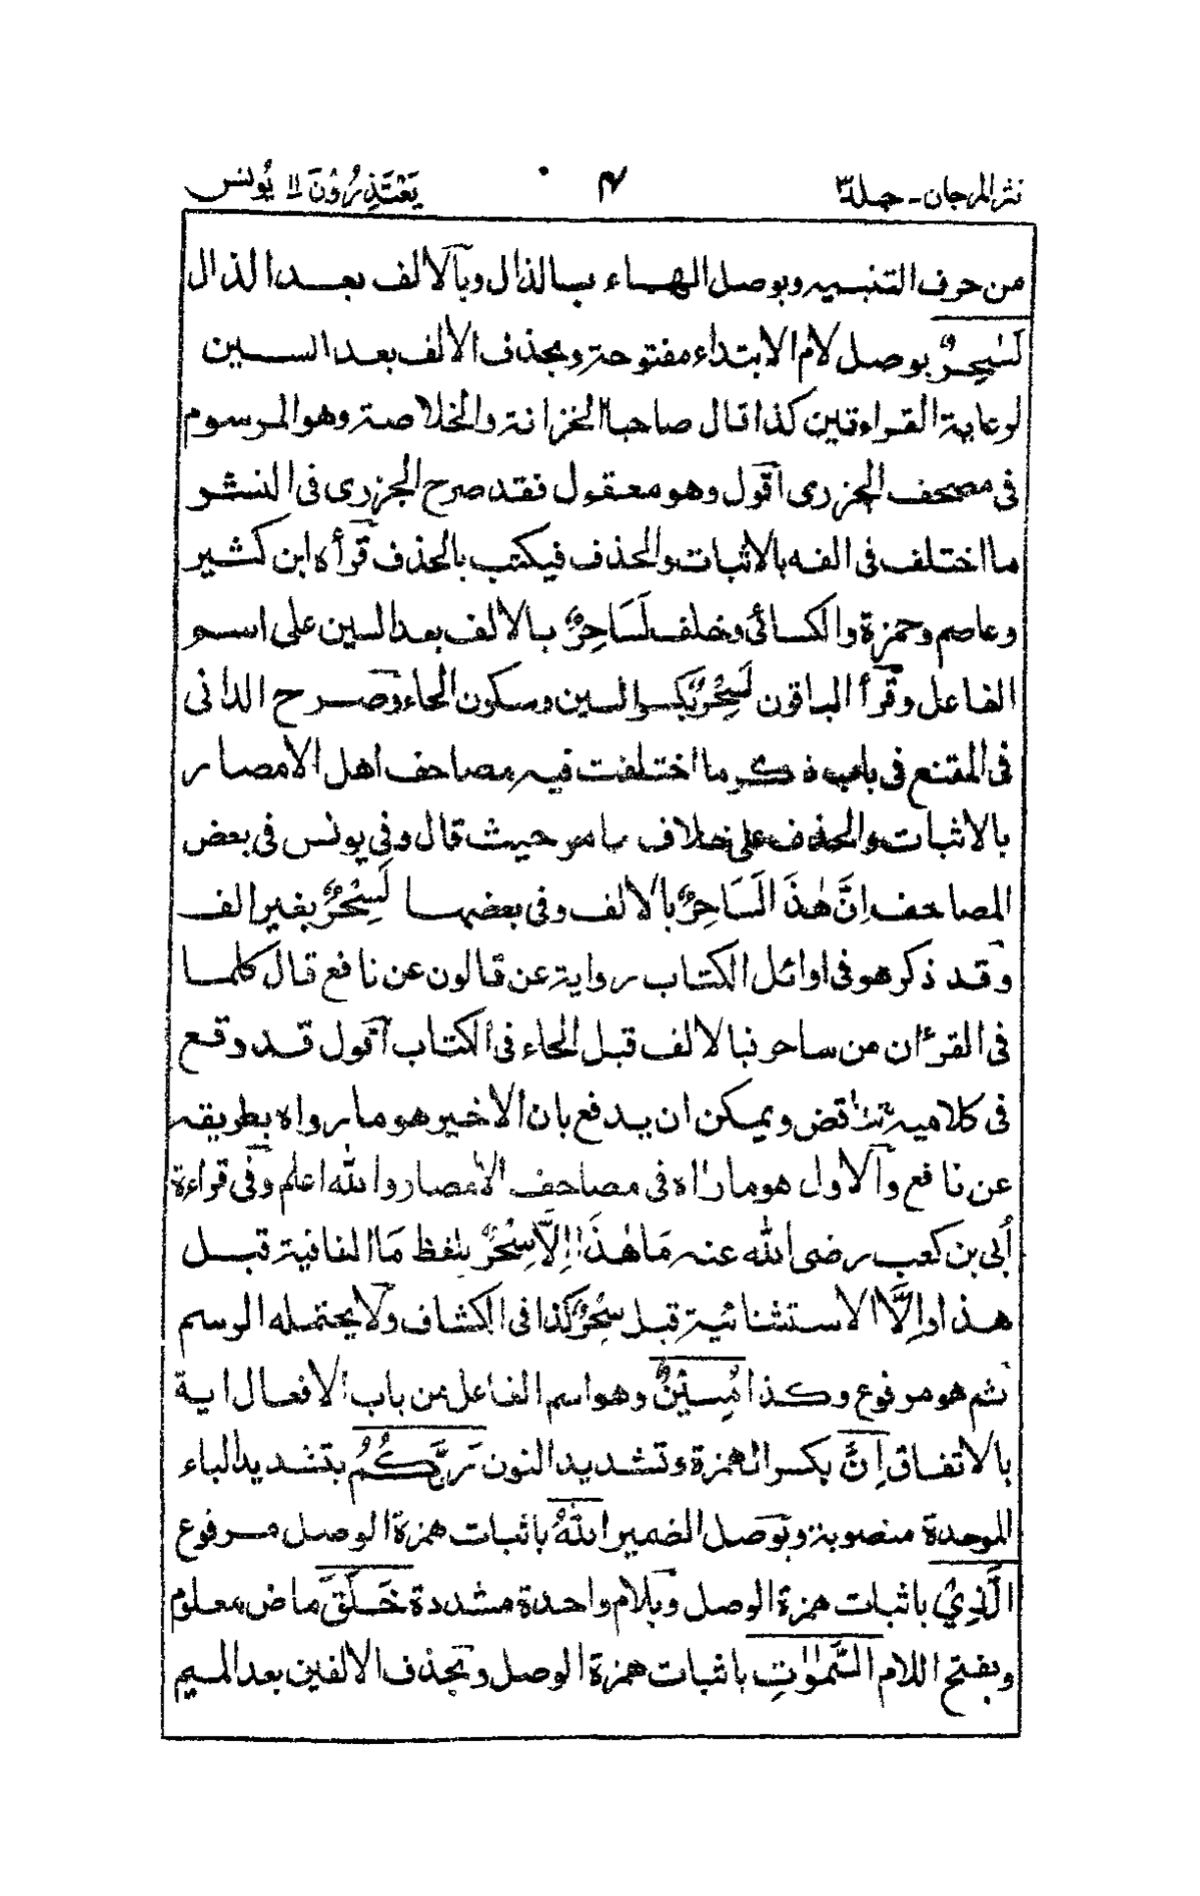 نثر المرجان - جلد ٣ ٤ يَعْتَذِرُوْنَ ١١ يُونس
من حرف التنبيه وبوصل الهاء بالذال وبالالف بعد الذال
لَسٰحِرٌ بوصل لام الابتداء مفتوحة وبحذف الالف بعد السين
لرعاية القراءتين كذا قال صاحبا الخزانة والخلاصة وهو المرسوم
فى مصحف الجزرى اقول وهو معقول فقد صرح الجزرى فى النشر
ما اختلف فى الفه بالاثبات والحذف فيكتب بالحذف قرأه ابن كثير
وعاصم وحمزة والكسائى وخلف لَسَاحِرٌ بالالف بعد السين على اسم
الفاعل وقرأ الباقون لَسِحْرٌ بكسر السين وسكون الحاء وصرح الدانى
فى المقنع فى باب ذكر ما اختلفت فيه مصاحف اهل الامصار
بالاثبات والحذف على خلاف ما مر حيث قال وفى يونس فى بعض
المصاحف اِنَّ هٰذَا لَسَاحِرٌ بالالف وفى بعضها لَسِحْرٌ بغير الف
وقد ذكر هو فى اوائل الكتاب رواية عن قالون عن نافع قال كلما
فى القرءان من ساحر فبالالف قبل الحاء فى الكتاب اقول قد وقع
فى كلاميه تناقض ويمكن ان يدفع بان الاخير هو ما رواه بطريقه
عن نافع والاول هو ما رأه فى مصاحف الامصار والله اعلم وفى قراءة
أبى بن كعب رضى الله عنه مَا هٰذَا اِلَّا سِحْرٌ بلفظ مَا النافية قبل
هذا واِلَّا الاستثنائية قبل سِحْرٌ كذا فى الكشاف ولا يحتمله الرسم
ثم هو مرفوع وكذا مُبِيْنٌ وهو اسم الفاعل من باب الافعال اية
بالاتفاق اِنَّ بكسر الهمزة وتشديد النون رَبَّكُمُ بتشديد الباء
الموحدة منصوبة وبوصل الضمير اللّٰهُ باثبات همزة الوصل مرفوع
الَّذِيْ باثبات همزة الوصل وبلام واحدة مشددة خَلَقَ ماض معلوم
وبفتح اللام السَّمٰوٰتِ باثبات همزة الوصل وبحذف الالفين بعد الميم